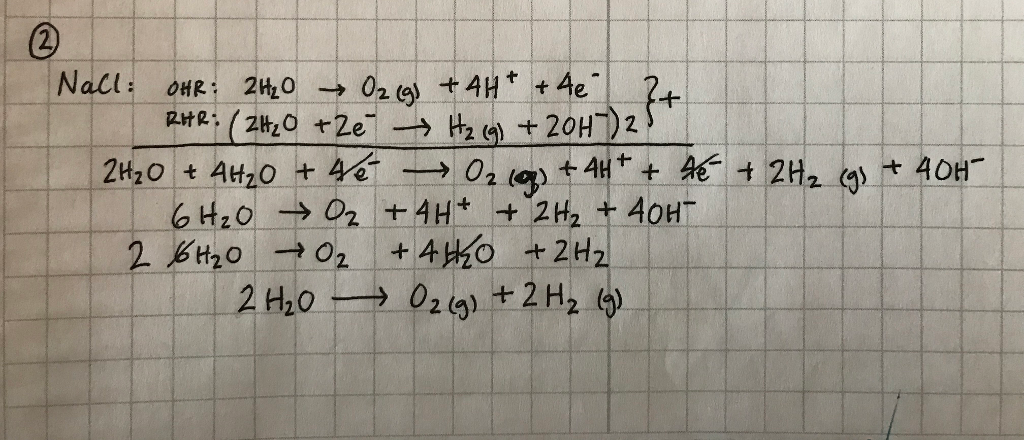 ②
NaCl: OHR: 2H₂O → O₂ (g) + 4H⁺ + 4e⁻ } +
RHR: (2H₂O + 2e⁻ → H₂ (g) + 2OH⁻)2
2H₂O + 4H₂O + 4e⁻ → O₂ (g) + 4H⁺ + 4e⁻ + 2H₂ (g) + 4OH⁻
6H₂O → O₂ + 4H⁺ + 2H₂ + 4OH⁻
2 6H₂O → O₂ + 4H₂O + 2H₂
2H₂O → O₂ (g) + 2H₂ (g)